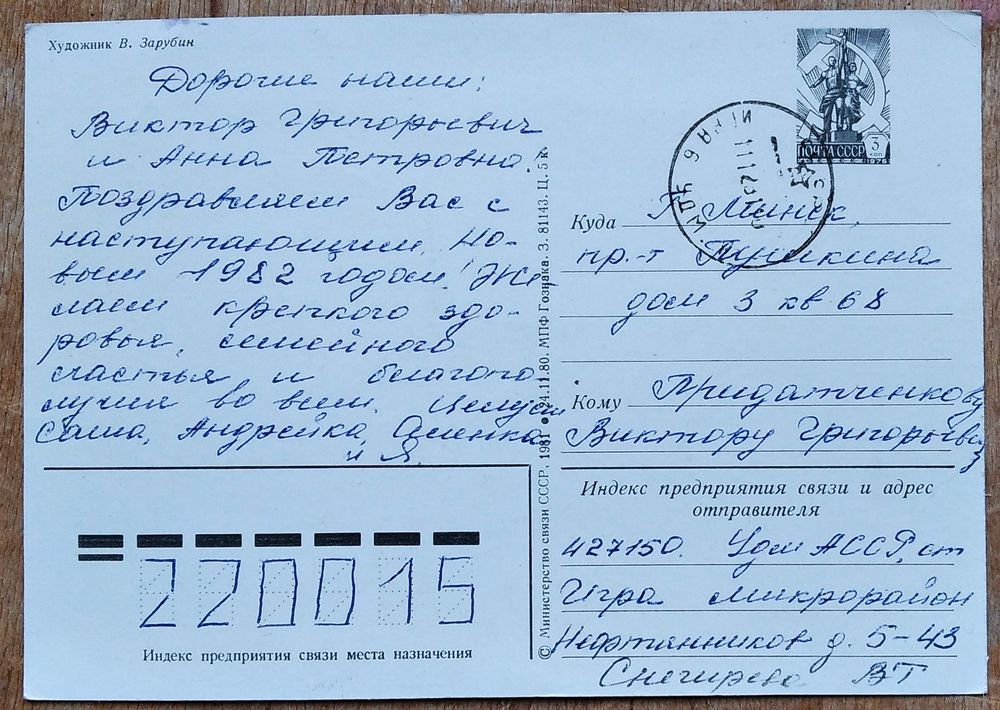 Художник В. Зарубин
Дорогие наши:
Виктор Григорьевич
и Анна Петровна.
Поздравляем Вас с
наступающим Но-
вым 1982 годом! Же
лаем крепкого здо-
ровья, семейного
счастья и благопо
лучия во всем. Целуем
Саша, Андрейка, Оленька
и Я.
220015
Индекс предприятия связи места назначения
© Министерство связи СССР, 1981 ● 24.11.80. МПФ Гознака. З. 81143. Ц. 5 к.
ПОЧТА СССР 3 коп
1976
ИГРА
Куда г. Минск,
пр.-т Пушкина
дом 3 кв 68
Кому Придатченкову
Виктору Григорьевичу
Индекс предприятия связи и адрес
отправителя
427150. Удм АССР, ст
Игра микрорайон
Нефтянников д. 5-43
Снегирева ВТ